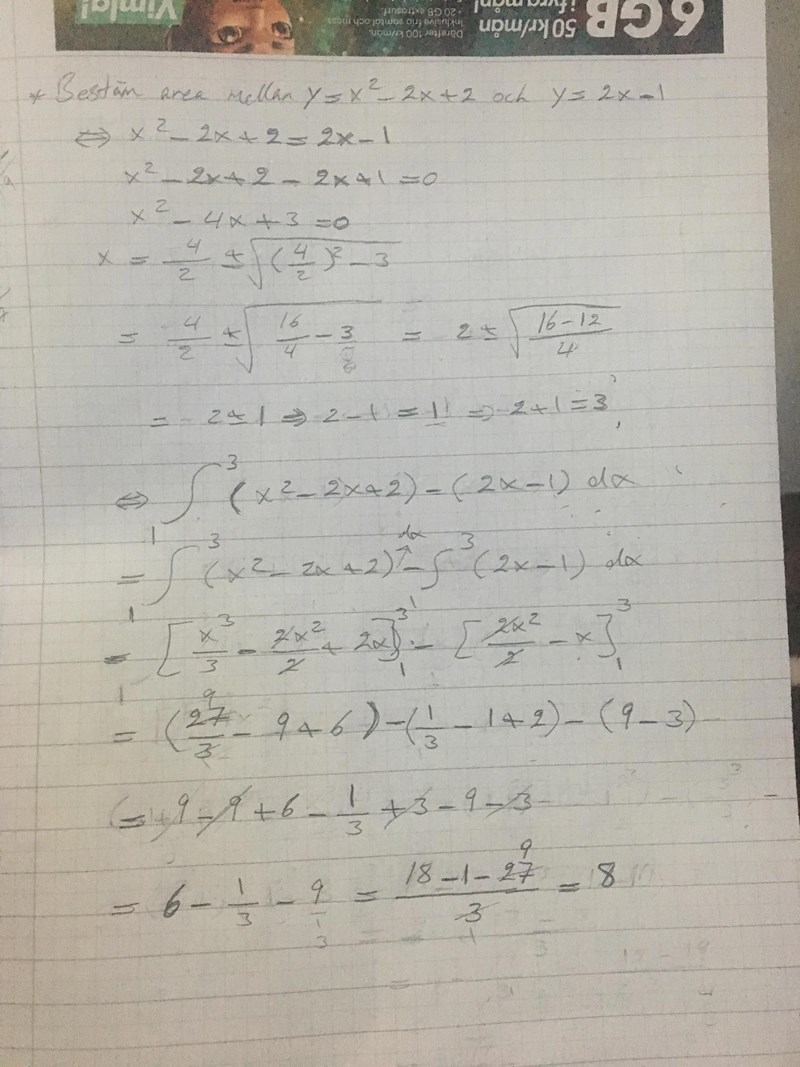 6 GB
i fyra mån!
50 kr/mån
Därefter 100 kr/mån.
Inklusive fria samtal och mess
+ 20 GB extrasurf
Vimla!
* Bestäm area mellan y = x² - 2x + 2 och y = 2x - 1
⇔ x² - 2x + 2 = 2x - 1
x² - 2x + 2 - 2x + 1 = 0
x² - 4x + 3 = 0
x = 4/2 ± √((4/2)² - 3)
= 4/2 ± √(16/4 - 3/1) = 2 ± √((16-12)/4)
= 2 ± 1 ⇒ 2 - 1 = 1 ⇒ 2 + 1 = 3
⇔ ∫₁³ (x² - 2x + 2) - (2x - 1) dx
= ∫₁³ (x² - 2x + 2) dx - ∫₁³ (2x - 1) dx
= [x³/3 - 2x²/2 + 2x]₁³ - [2x²/2 - x]₁³
= (27/3 9 - 9 + 6) - (1/3 - 1 + 2) - (9 - 3)
= +9 - 9 + 6 - 1/3 + 3 - 9 - 3
= 6 - 1/3 - 9/1 3 = (18 - 1 - 27 9)/3 = 8